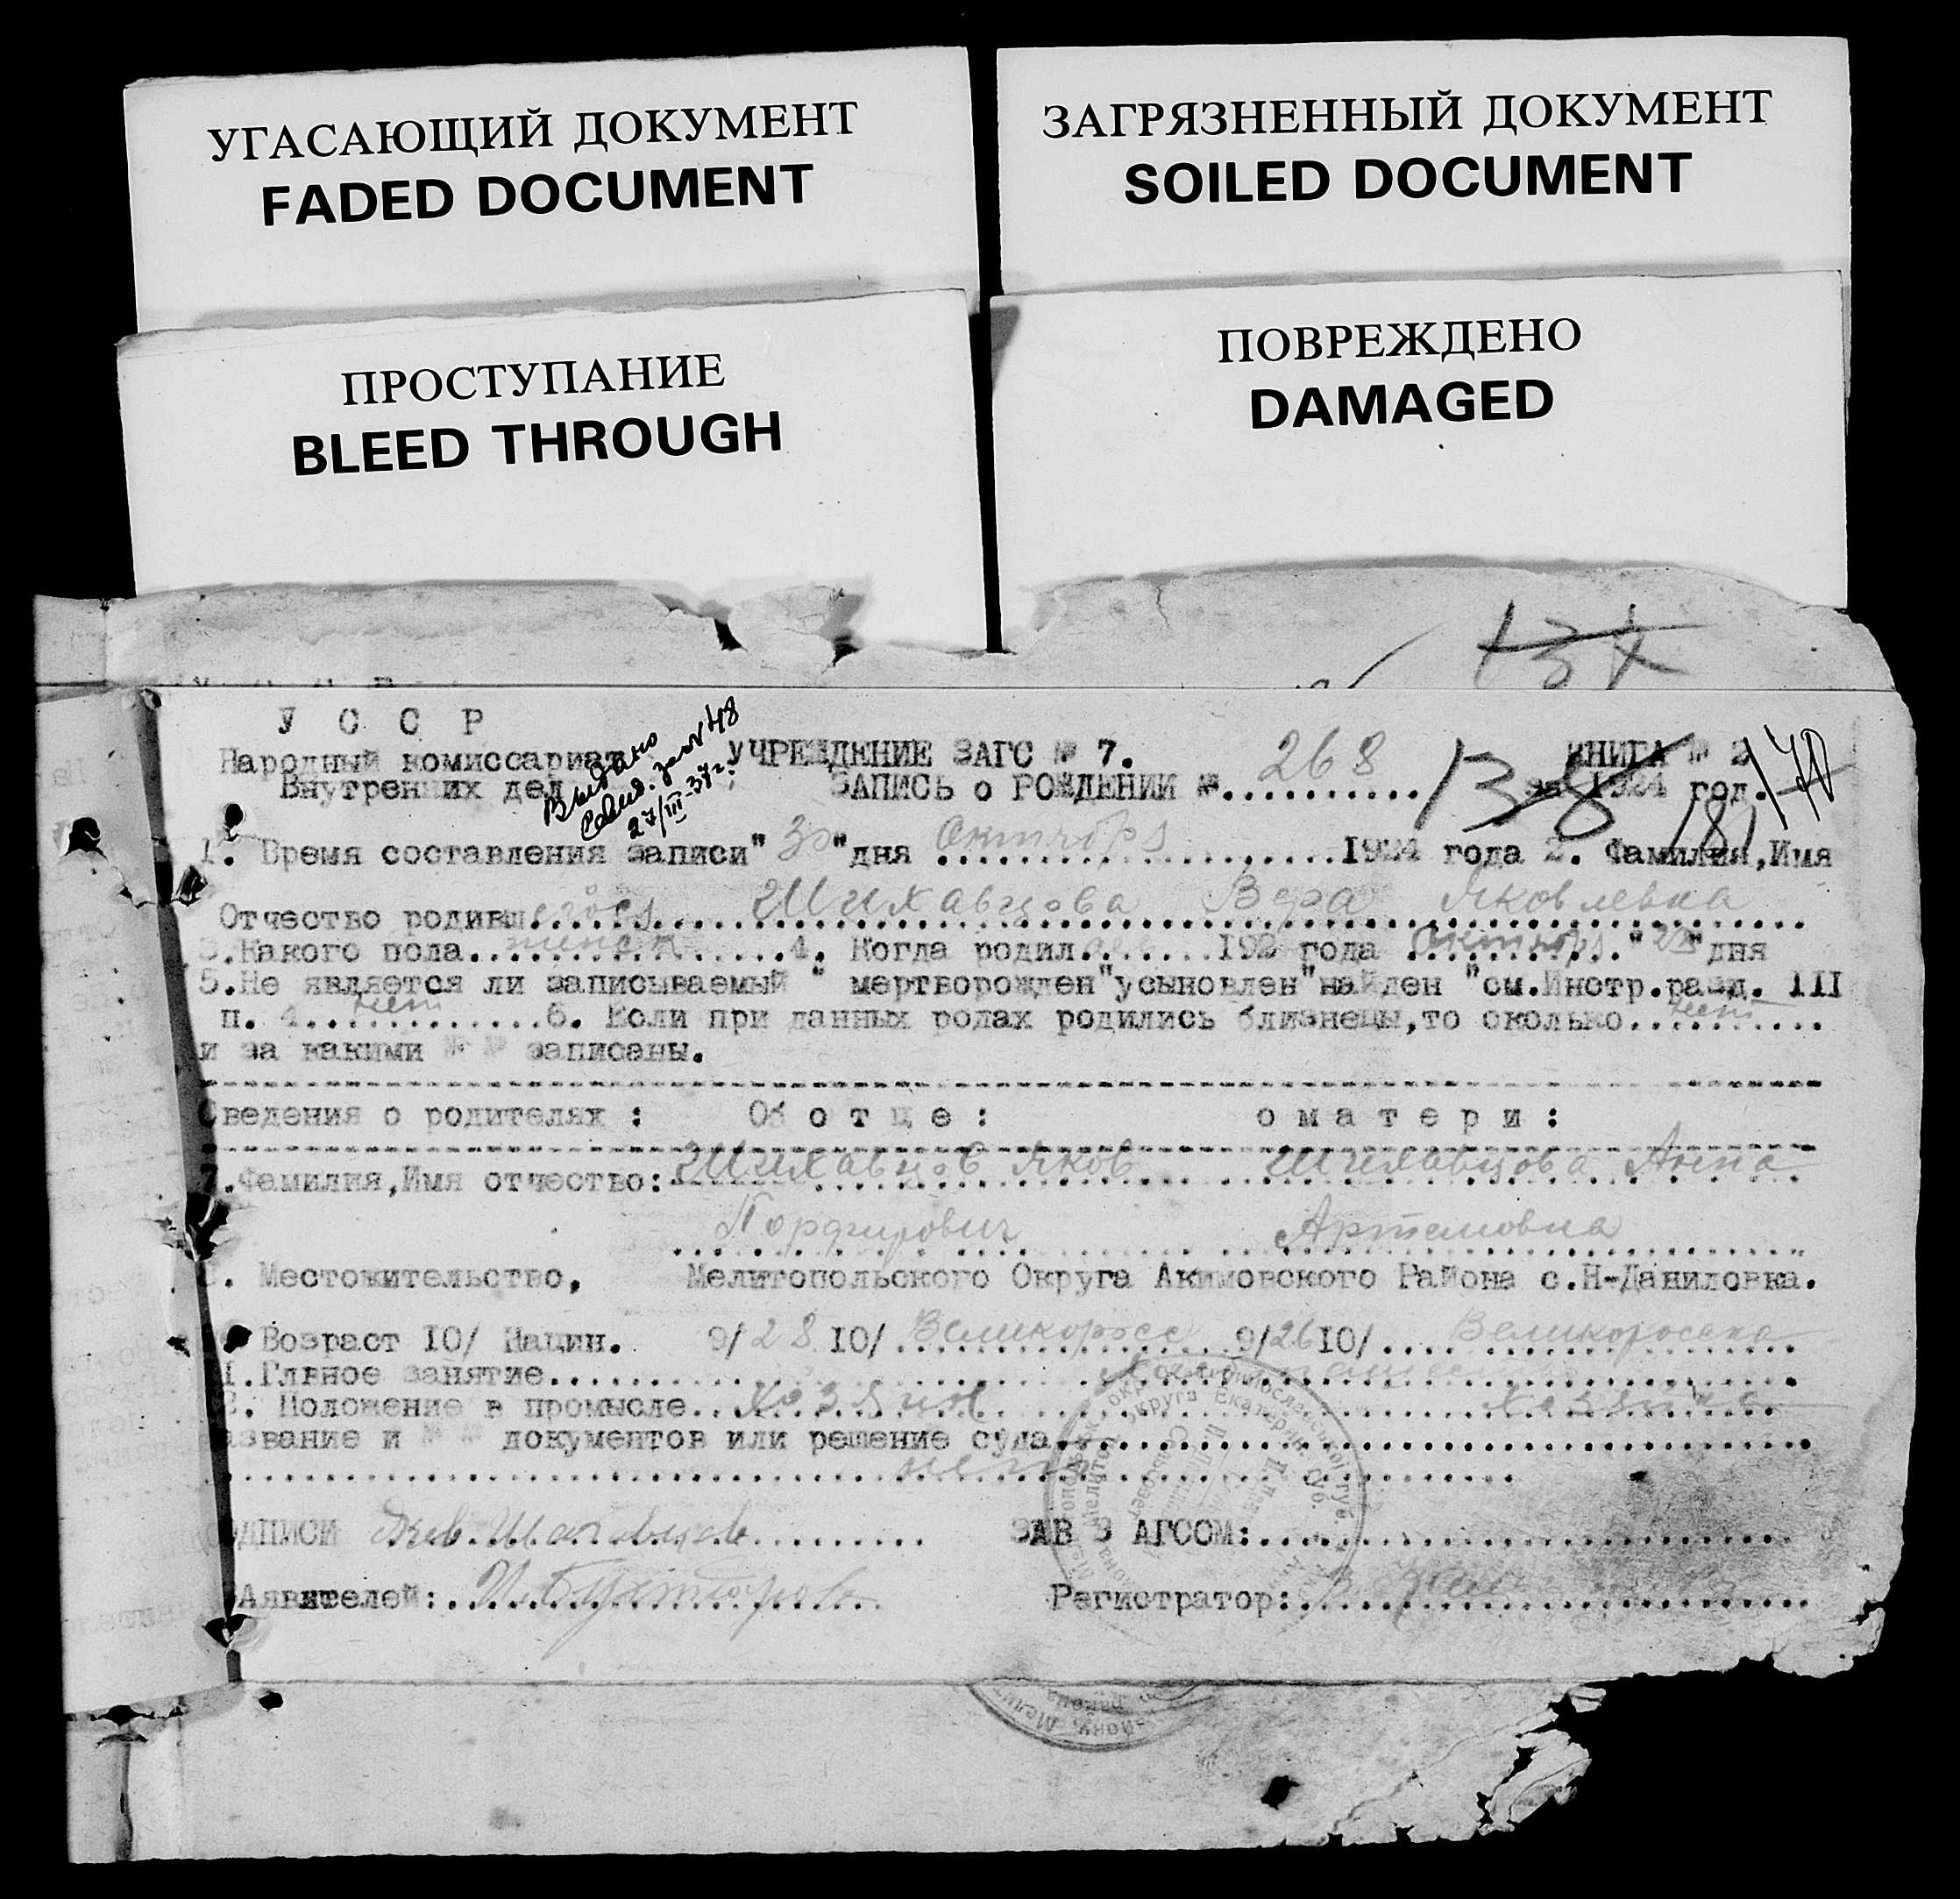 УГАСАЮЩИЙ ДОКУМЕНТ
FADED DOCUMENT
ЗАГРЯЗНЕННЫЙ ДОКУМЕНТ
SOILED DOCUMENT
ПРОСТУПАНИЕ
BLEED THROUGH
ПОВРЕЖДЕНО
DAMAGED
У С С Р
Народный комиссариат
Внутренних дел
Выдано
Свид. за №48
27/III-37г.
УЧРЕЖДЕНИЕ ЗАГС № 7.
ЗАПИСЬ о РОЖДЕНИИ № 268
КНИГА № 2
за 1924 год.
138
181
170
1. Время составления записи "30" дня Октября 1924 года 2. Фамилия, Имя
Отчество родивш егося Шихавцова Вера Яковлевна
3. Какого пола женск 4. Когда родил ась 192 года Октября "22" дня
5. Не является ли записываемый " мертворожден "усыновлен" найден "см. Инстр. разд. III
п. 4 нет 6. Если при данных родах родились близнецы, то сколько нет
и за какими № № записаны.
Сведения о родителях : Об о т ц е : о м а т е р и :
7. Фамилия, Имя отчество: Шихавцов Яков Шихавцова Анна
Порфирович Артемовна
8. Местожительство, Мелитопольского Округа Акимовского Района с. Н-Даниловка.
Возраст 10/ Нацин. 9/ 28 10/ Великоросс 9/ 26 10/ Великоросска
11. Глвное занятие
2. Положение в промысле Хозяин Хозяйка
азвание и № № документов или решение суда
нет
ОДПИСИ Яков Шихавцов ЗАВ З АГСОМ:
ЗАявителей: Регистратор: